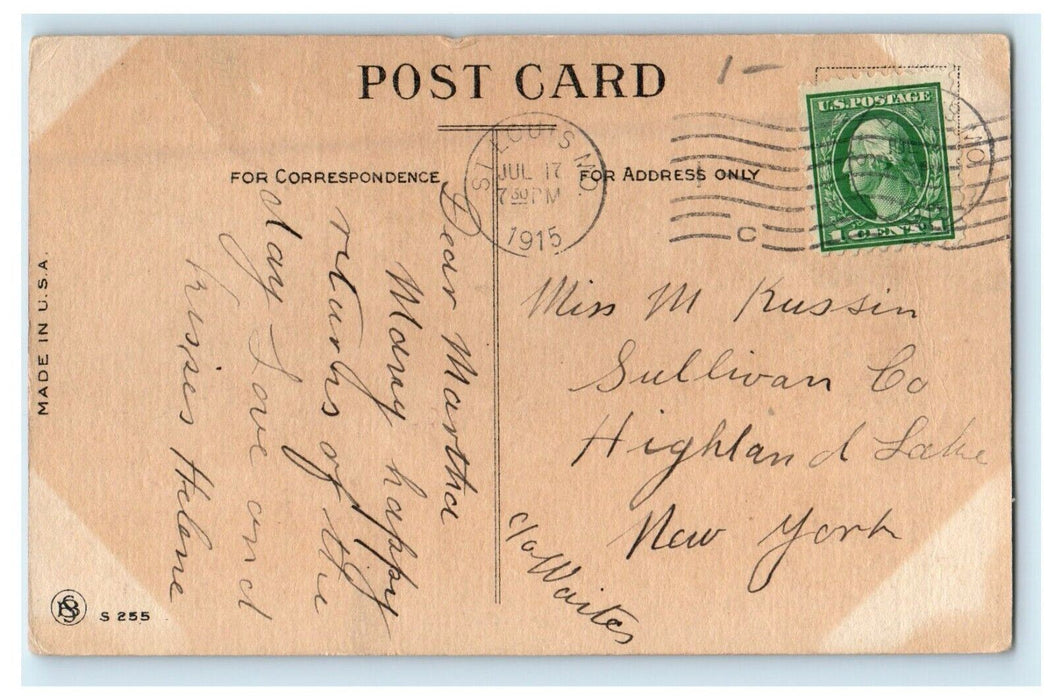 POST CARD
1-
FOR CORRESPONDENCE
FOR ADDRESS ONLY
ST. LOUIS MO.
JUL 17
7 30 PM
1915
C
MO.
U.S. POSTAGE
1 CENT 1
Dear Martha
Many happy
returns of the
day Love and
Kisses Helene
Miss M Kussin
Sullivan Co
Highland Lake
New York
c/o Waites
MADE IN U.S.A.
S 255